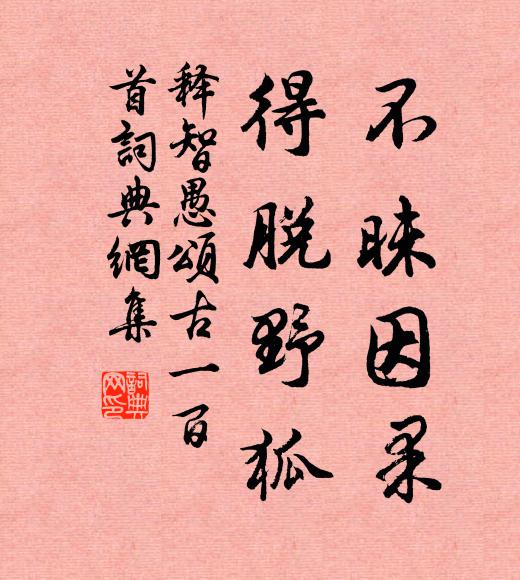 不昧因果
得脱野狐
释智愚颂古一百
首詞典網集
詞典網印